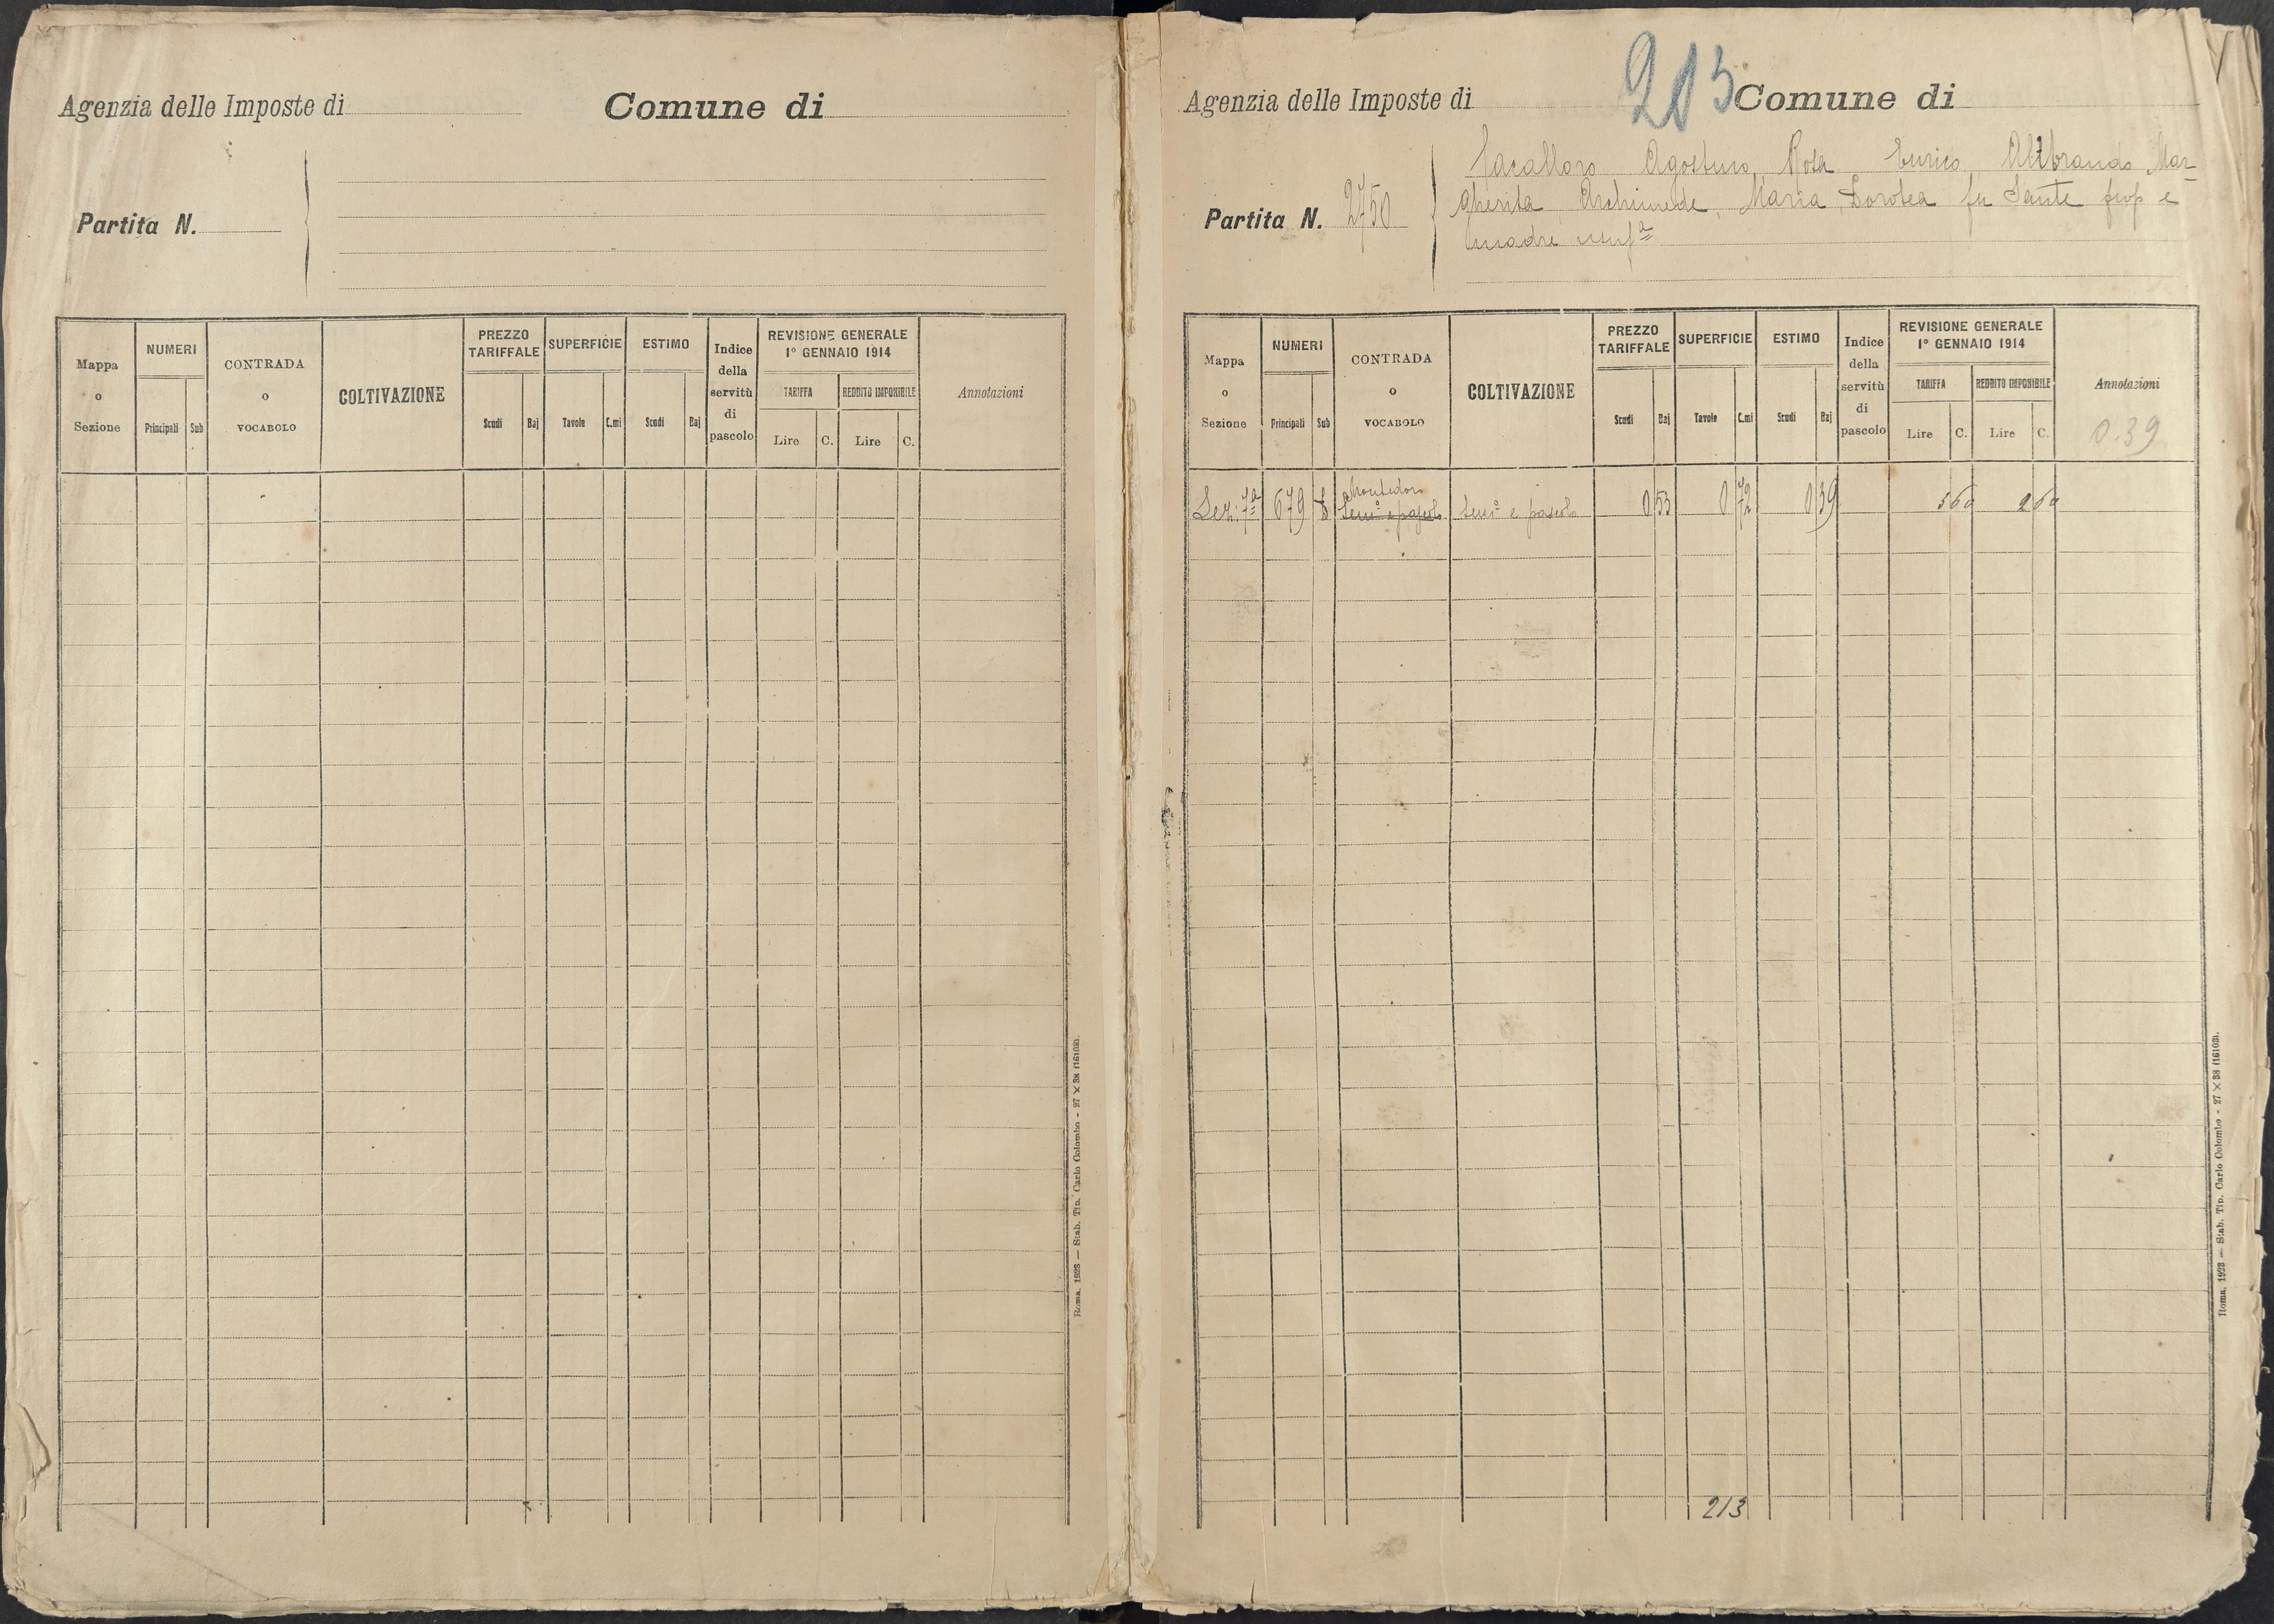 Agenzia delle Imposte di
Comune di
Partita N.
Mappa o Sezione
NUMERI
Principali
Sub
CONTRADA o VOCABOLO
COLTIVAZIONE
PREZZO TARIFFALE
Scudi
Baj
SUPERFICIE
Tavole
C.mi
ESTIMO
Scudi
Baj
Indice della servitù di pascolo
REVISIONE GENERALE
1° GENNAIO 1914
TARIFFA
Lire
C.
REDDITO IMPONIBILE
Lire
C.
Annotazioni
Roma, 1923 — Stab. Tip. Carlo Colombo - 27 × 38 (16103).
213
Agenzia delle Imposte di
Comune di
Partita N. 2750
Agostino, Rosa Enrico, Mar-
gherita, Archimede, Maria, Dorotea fu Sante prop e
madre
Mappa o Sezione
NUMERI
Principali
Sub
CONTRADA o VOCABOLO
COLTIVAZIONE
PREZZO TARIFFALE
Scudi
Baj
SUPERFICIE
Tavole
C.mi
ESTIMO
Scudi
Baj
Indice della servitù di pascolo
REVISIONE GENERALE
1° GENNAIO 1914
TARIFFA
Lire
C.
REDDITO IMPONIBILE
Lire
C.
Annotazioni
0.39
Montedoro
Sez: 7ª 679 Sem° e pascolo Sem° e pascolo 0 53 0 72 0 39
213
Roma, 1923 — Stab. Tip. Carlo Colombo - 27 × 38 (16103).